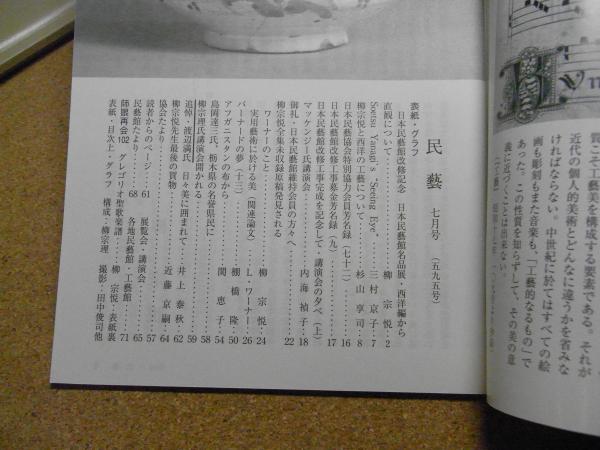 質こそ工藝美を構成する要素である。それが
近代の個人的美術とどんなに違うかを省みな
ければならない。中世紀に於てはすべての絵
画も彫刻もまた音楽も、「工藝的なるもの」で
あった。この性質を知らずして、その美の意
義に近づくことは出来ない。
民藝 七月号 (五九五号)
表紙・グラフ
日本民藝館改修記念 日本民藝館名品展・西洋編から
直観について……柳 宗悦・2
Soetsu Yanagi's “Seeing Eye”……三村 京子・7
柳宗悦と西洋の工藝について……杉山 享司・8
日本民藝協会特別協力会員芳名録(七十二)……16
日本民藝館改修工事募金芳名録(九)……17
日本民藝館改修工事完成を記念して・講演会の夕べ(上)……18
マッケンジー氏講演会……内海 禎子・18
御礼・日本民藝館維持会員の方々へ……22
柳宗悦全集未収録原稿発見される
ワーナーのこと……柳 宗悦・24
実用藝術に於ける美(関連論文)……L・ワーナー・26
バーナードの夢(十三)……棚橋 隆・50
アフガニスタンの春から……関 恵子・54
島岡達三氏、栃木県の名誉県民に……58
柳宗理氏講演会開かれる……59
追悼・渡辺満氏 日々美に囲まれて……井上 泰秋・62
柳宗悦先生最後の買物……近藤 京嗣・64
協会たより……57
読者からのページ……61
展覧会・講演会……65
民藝館たより……68
各地民藝館・工藝館……71
師眼再会102 グレゴリオ聖歌楽譜……柳 宗悦・表紙裏
表紙・目次上・グラフ 構成・柳宗理 撮影・田中俊司他